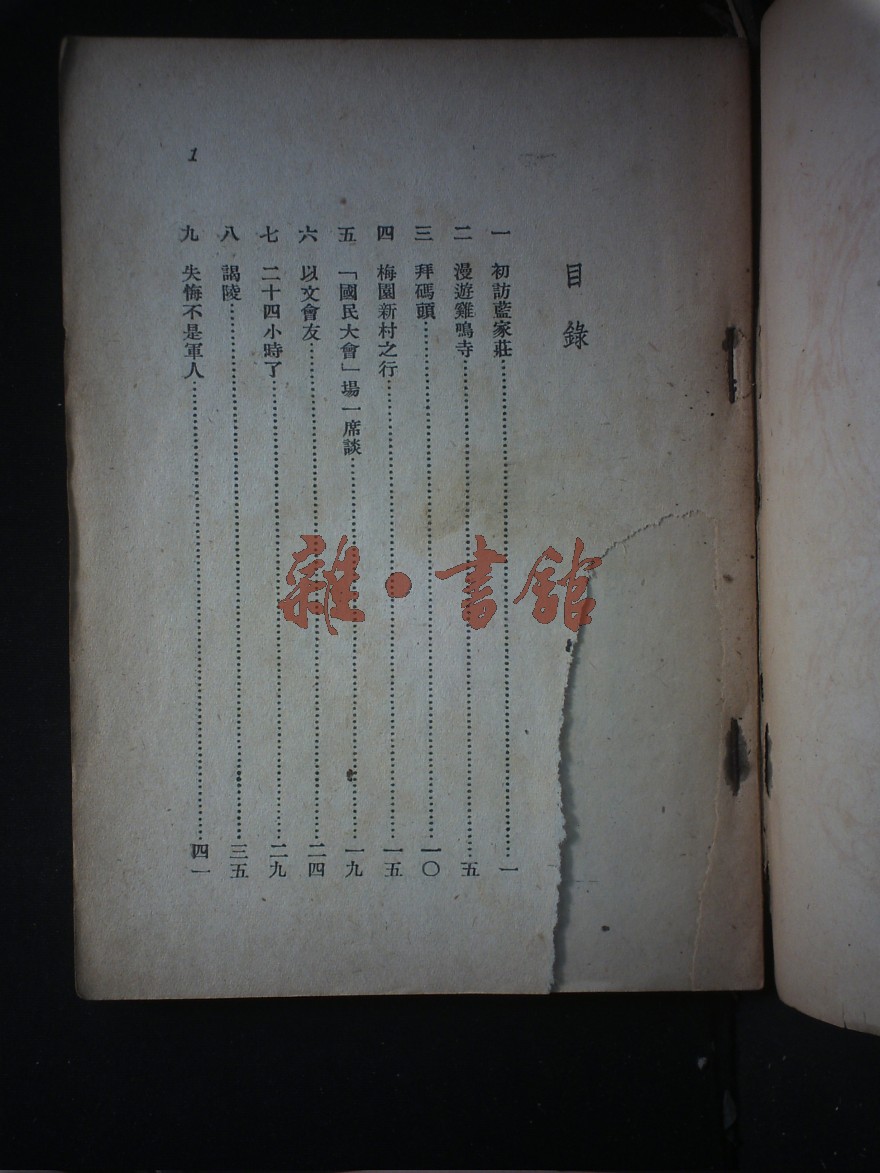 目錄
一 初訪藍家莊……一
二 漫遊雞鳴寺……五
三 拜碼頭……一〇
四 梅園新村之行……一五
五 「國民大會」場一席談……一九
六 以文會友……二四
七 二十四小時了……二九
八 謁陵……三五
九 失悔不是軍人……四一
1
雜·書館